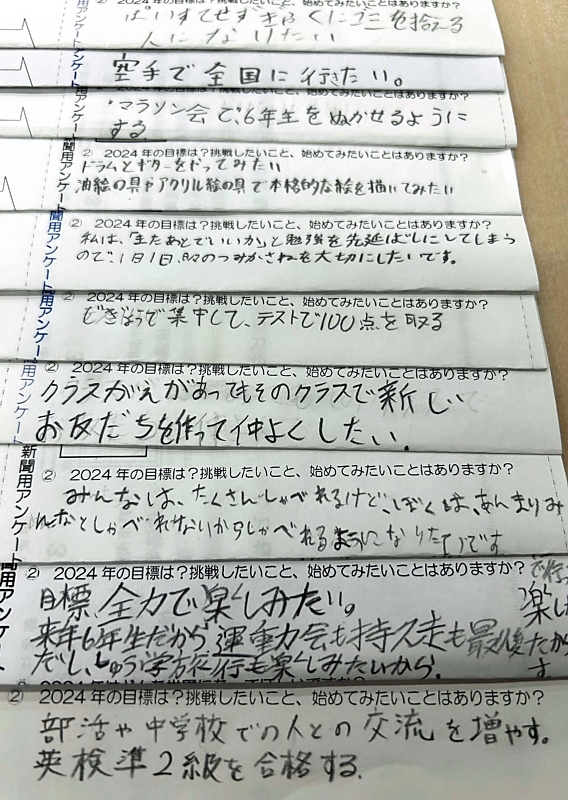 ② 2024年の目標は？挑戦したいこと、始めてみたいことはありますか？
ぽいすてせずきちくにゴミを拾える
人になりたい
空手で全国に行きたい。
・マラソン会で、6年生をぬかせるように
する
② 2024年の目標は？挑戦したいこと、始めてみたいことはありますか？
ドラムとギターをやってみたい
油絵の具やアクリル絵の具で本格的な絵を描いてみたい
② 2024年の目標は？挑戦したいこと、始めてみたいことはありますか？
私は、「またあとでいいか」と勉強を先延ばしにしてしまう
ので、1日1日、日々のつみかさねを大切にしたいです。
② 2024年の目標は？挑戦したいこと、始めてみたいことはありますか？
で集中して、テストで100点を取る
② 2024年の目標は？挑戦したいこと、始めてみたいことはありますか？
クラスがえがあってもそのクラスで新しい
お友だちを作って仲よくしたい。
② 2024年の目標は？挑戦したいこと、始めてみたいことはありますか？
みんなは、たくさんしゃべれるけど、ぼくは、あんまりみ
んなとしゃべれないからしゃべれるようになりたいです
② 2024年の目標は？挑戦したいこと、始めてみたいことはありますか？
目標、全力で楽しみたい。
来年6年生だから運動会も持久走も最後だから
だし、しゅう学旅行も楽しみたいから。
② 2024年の目標は？挑戦したいこと、始めてみたいことはありますか？
部活や中学校での人との交流を増やす。
英検準2級を合格する。
新聞用アンケート